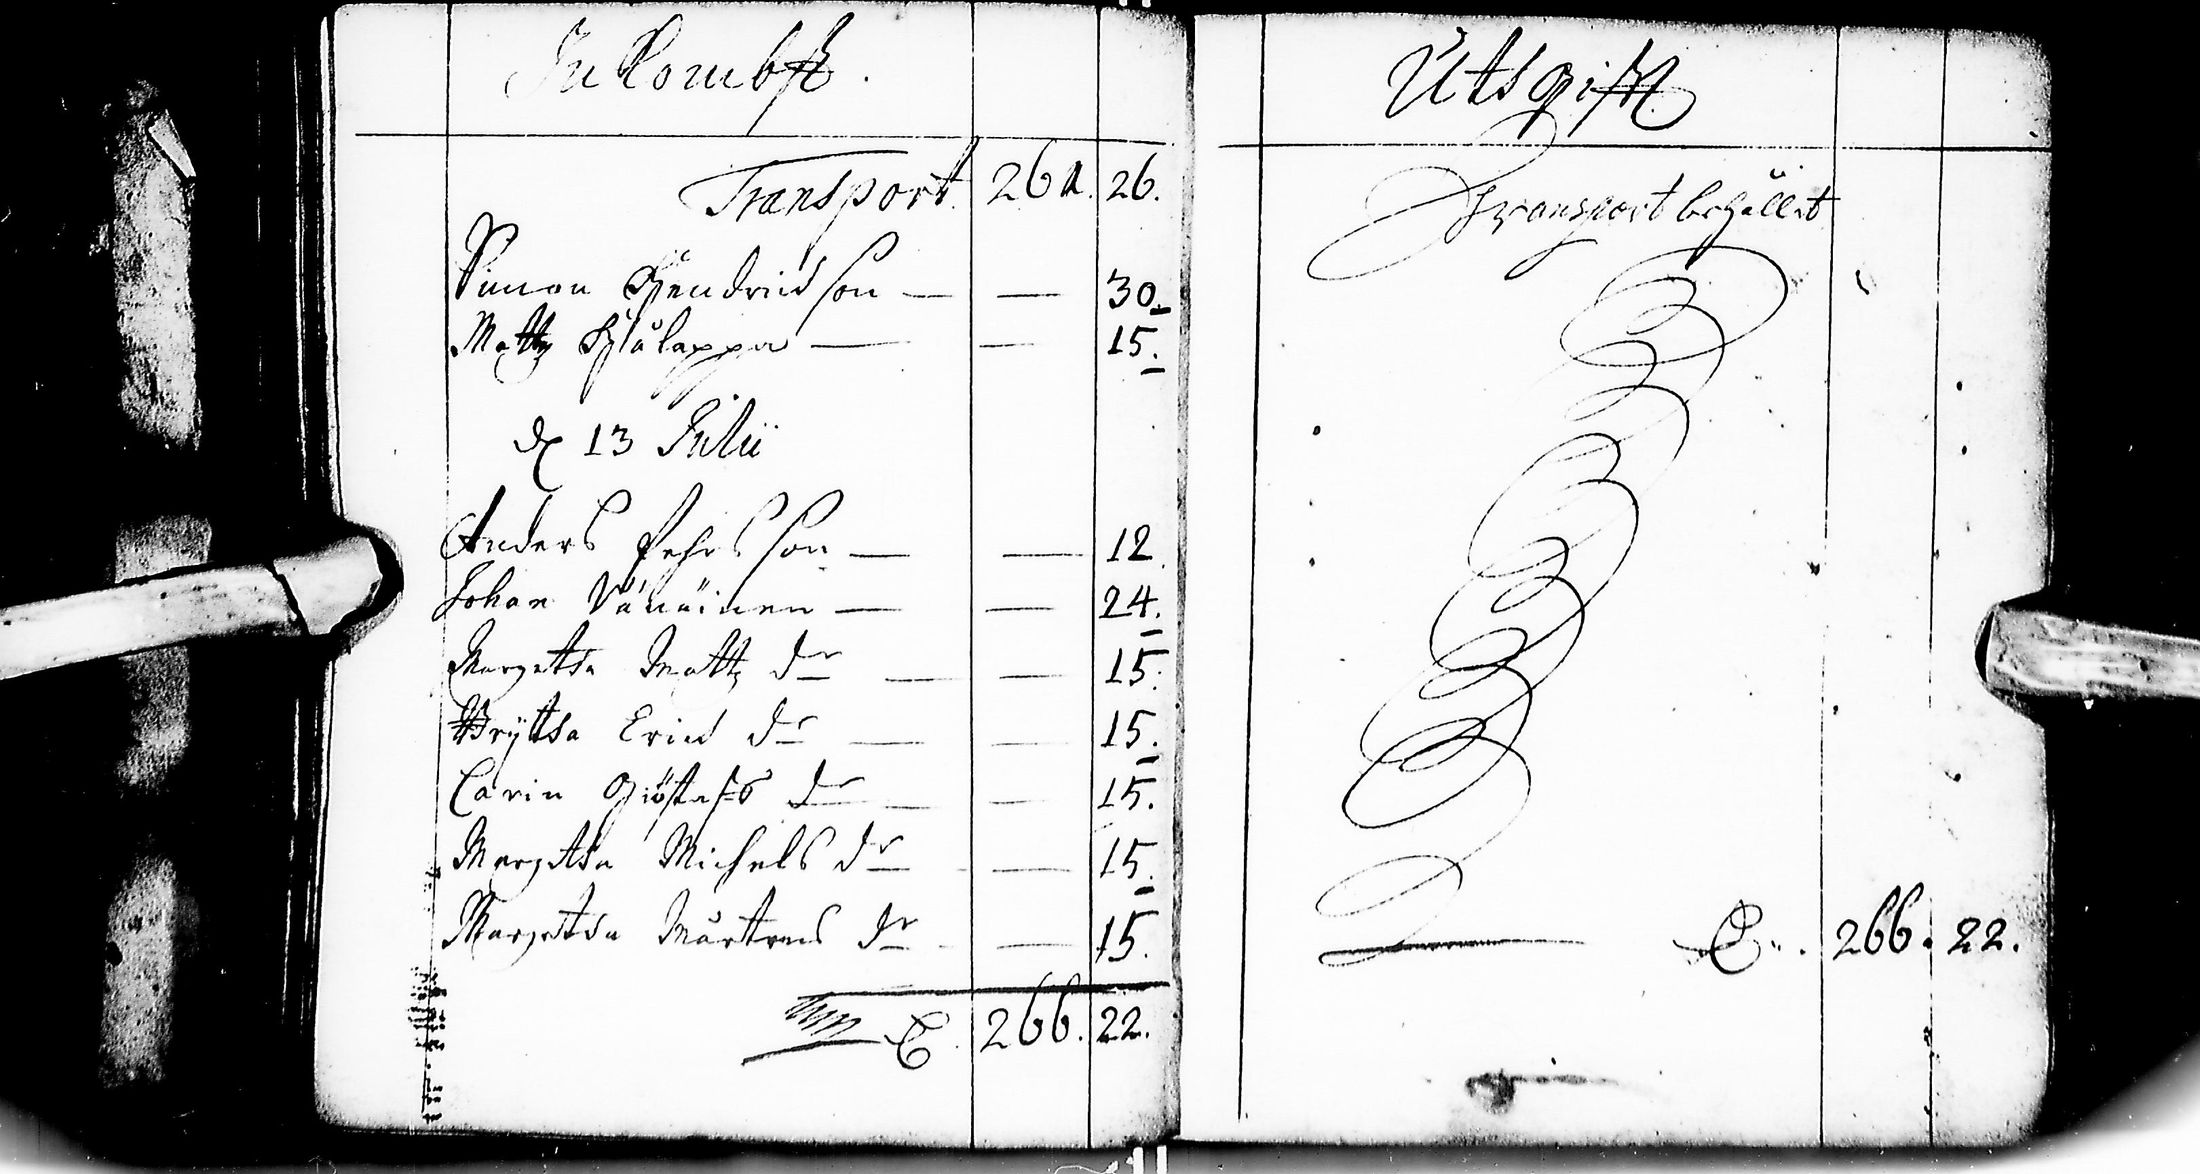 Inkombst.
Transport. 261. 26.
Simon Hendricdson — — 30.
Matts — — 15.
d. 13 Julii
Anders Pehrsson — — 12
Johan Vänäinen — — 24.
Margetta Matts dr — — 15.
Brytta Ericd dr — — 15.
Carin Giöstafs dr — — 15.
Margetta Michels dr — — 15.
Margetta Mårtens dr — — 15.
Sum 266. 22.
Utsgifft
Transport behållit
266. 22.